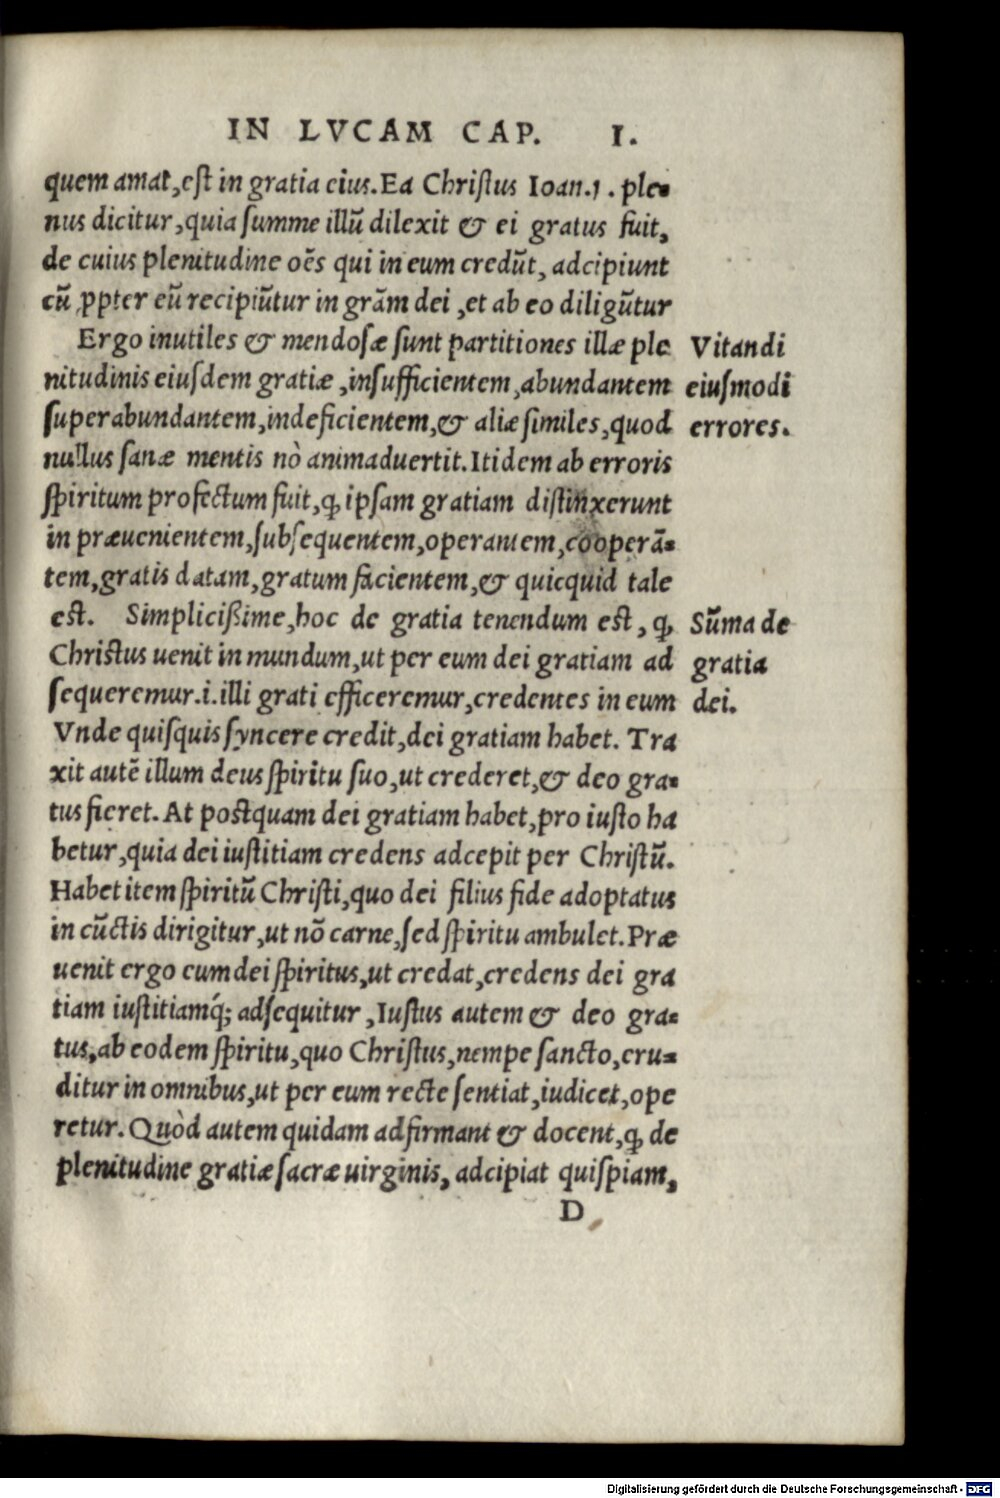 IN LVCAM CAP. I.
quem amat, est in gratia eius. Ea Christus Ioan. 1. ple-
nus dicitur, quia summe illũ dilexit & ei gratus fuit,
de cuius plenitudine oẽs qui in eum credũt, adcipiunt
cũ ꝓpter eũ recipiũtur in grãm dei, et ab eo diligũtur
Ergo inutiles & mendosæ sunt partitiones illæ ple
nitudinis eiusdem gratiæ, insufficientem, abundantem
superabundantem, indeficientem, & aliæ similes, quod
nullus sanæ mentis nò animaduertit. Itidem ab erroris
spiritum profectum fuit, ꝙ ipsam gratiam distinxerunt
in præuenientem, subsequentem, operantem, cooperã-
tem, gratis datam, gratum facientem, & quicquid tale
est. Simplicißime, hoc de gratia tenendum est, ꝙ
Christus uenit in mundum, ut per eum dei gratiam ad
sequeremur .i. illi grati efficeremur, credentes in eum
Vnde quisquis syncere credit, dei gratiam habet. Tra
xit autẽ illum deus spiritu suo, ut crederet, & deo gra-
tus fieret. At postquam dei gratiam habet, pro iusto ha
betur, quia dei iustitiam credens adcepit per Christũ.
Habet item spiritũ Christi, quo dei filius fide adoptatus
in cũctis dirigitur, ut nõ carne, sed spiritu ambulet. Præ
uenit ergo eum dei spiritus, ut credat, credens dei gra
tiam iustitiamq́; adsequitur, Iustus autem & deo gra-
tus, ab eodem spiritu, quo Christus, nempe sancto, eru-
ditur in omnibus, ut per eum recte sentiat, iudicet, ope
retur. Quòd autem quidam adfirmant & docent, ꝙ de
plenitudine gratiæ sacræ uirginis, adcipiat quispiam,
D
Vitandi
eiusmodi
errores.
Sũma de
gratia
dei.
Digitalisierung gefördert durch die Deutsche Forschungsgemeinschaft - DFG